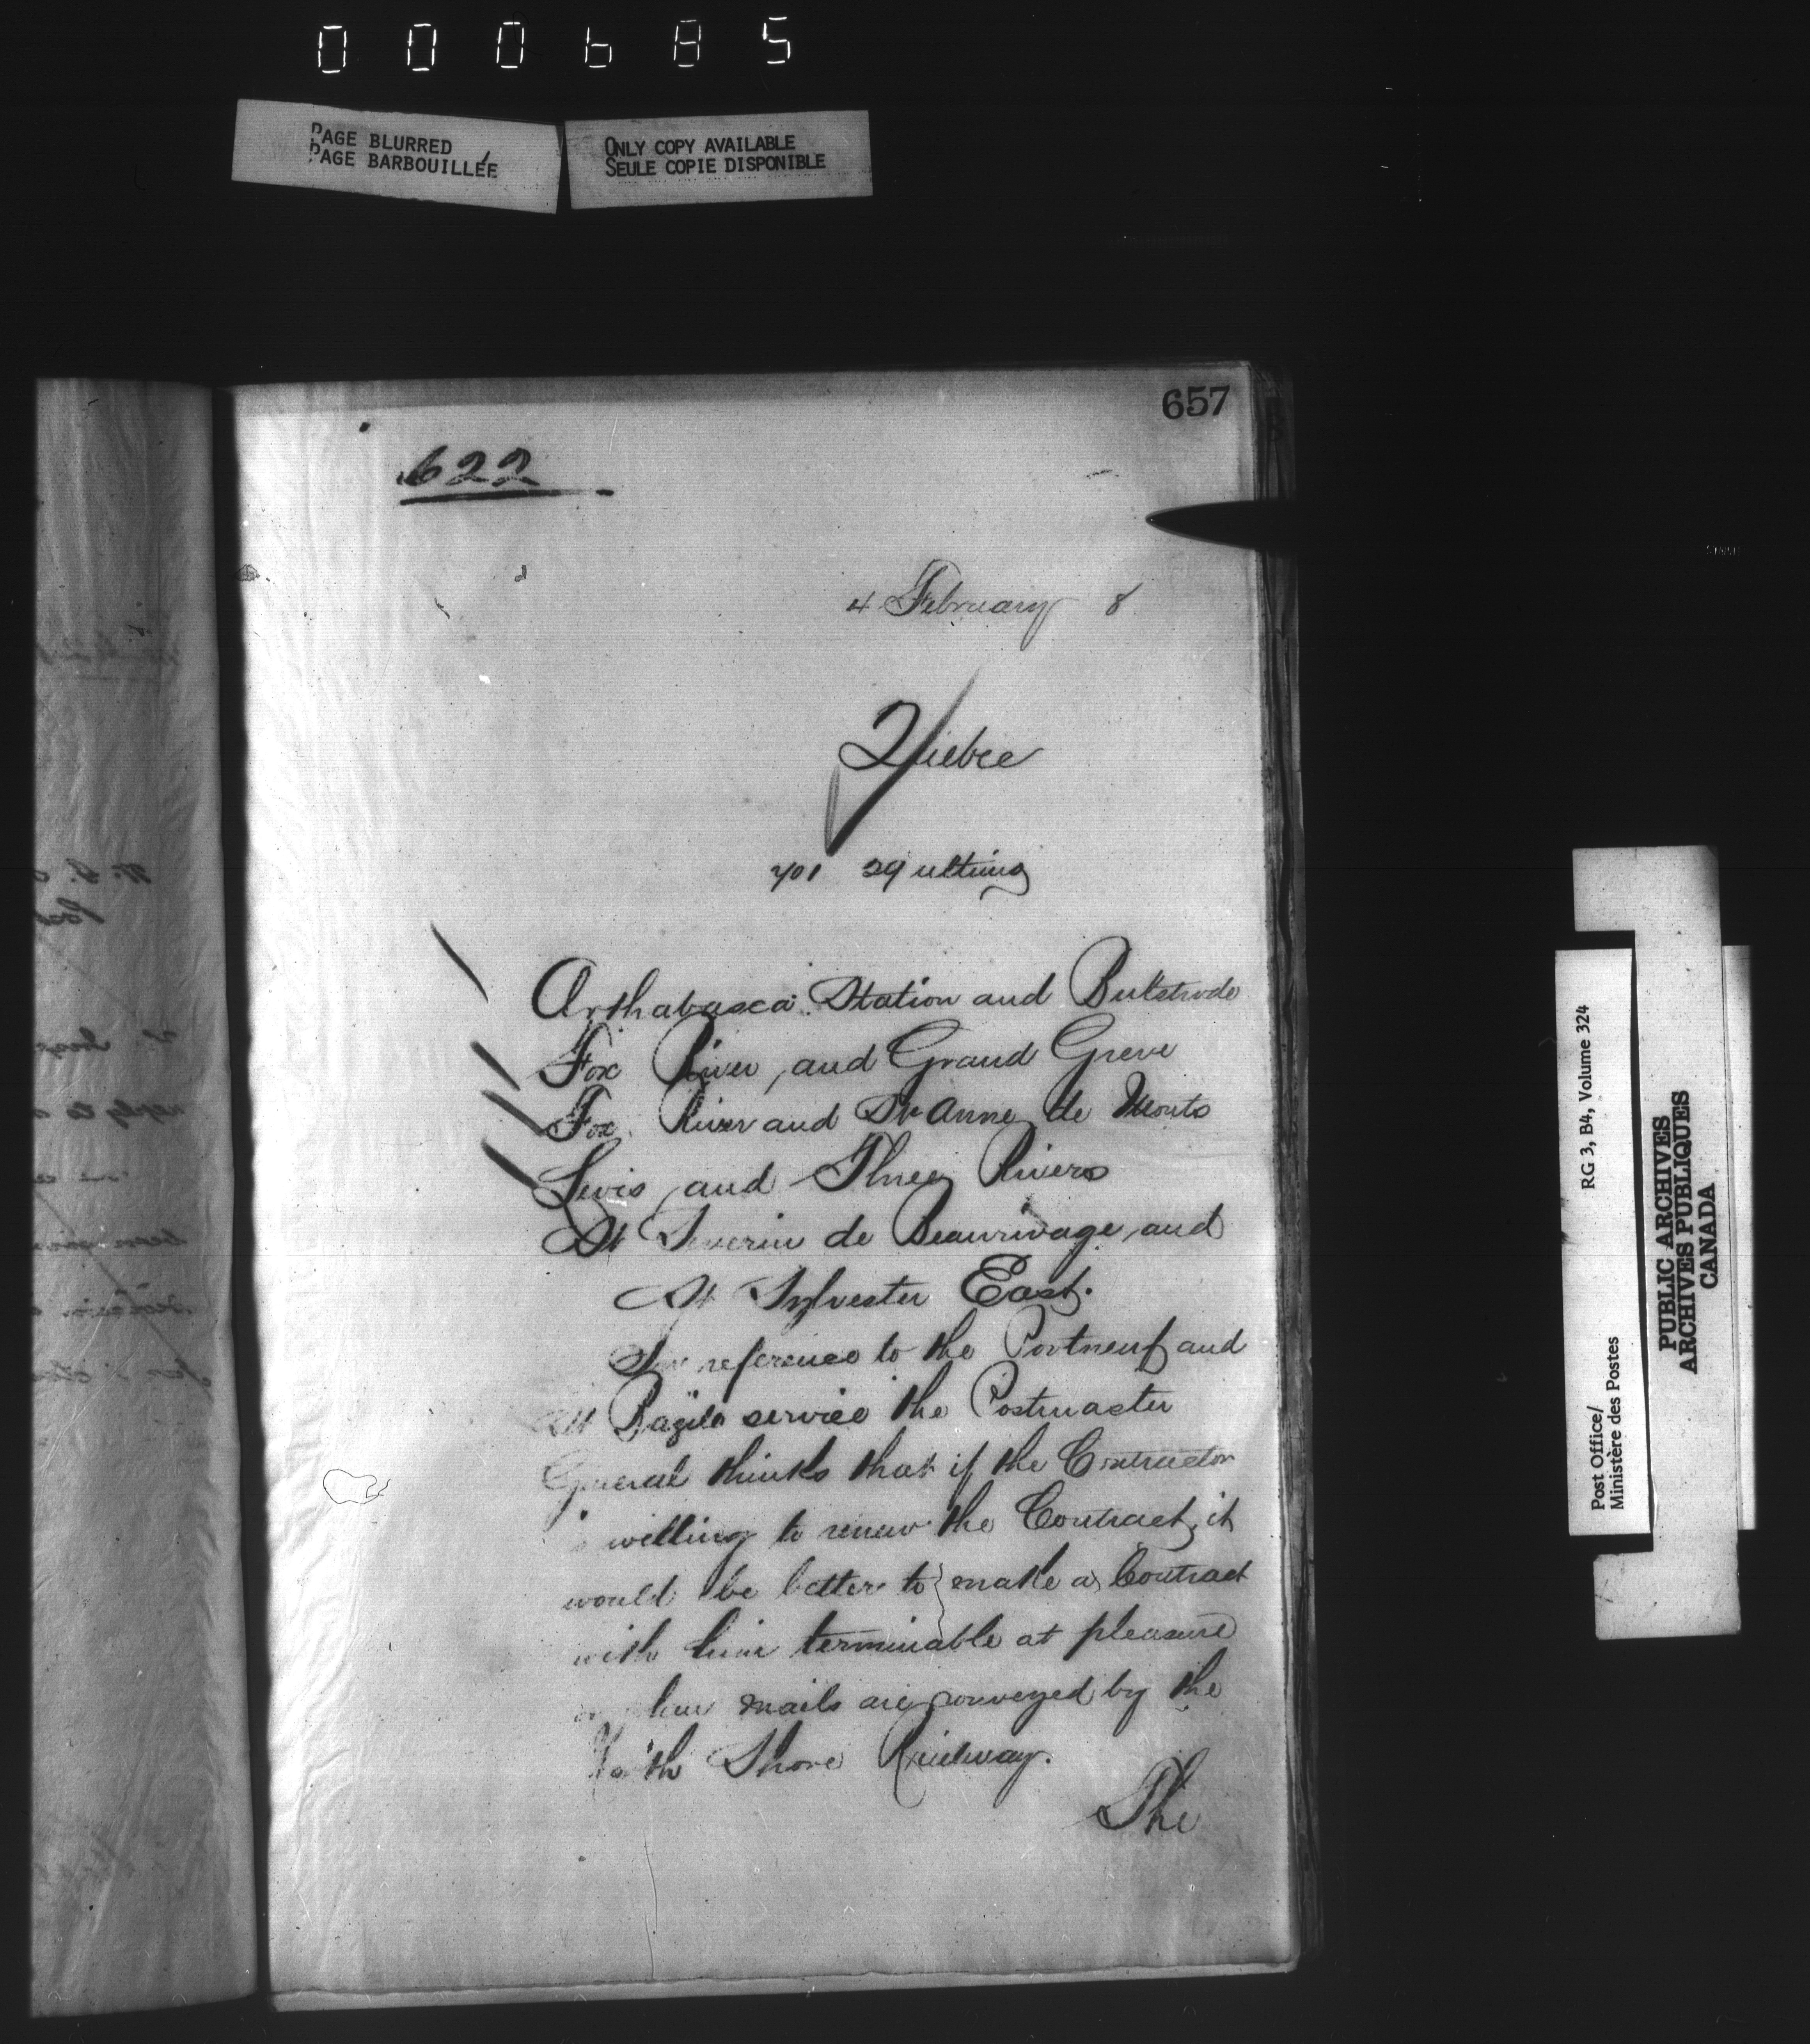 000685
PAGE BLURRED
PAGE BARBOUILLÉE
ONLY COPY AVAILABLE
SEULE COPIE DISPONIBLE
657
622
4 February 8
Quebec
701 29 ultimo
Arthabasca Station and Bulstrode
Fox River, and Grand Greve
Fox River and Ste Anne de Monts
Levis, and Three Rivers
St Severin de Beaurivage, and
St Sylvester East.
In reference to the Portneuf and
St Bazile service the Postmaster
General thinks that if the Contractor
is willing to renew the Contract, it
would be better to make a Contract
with him terminable at pleasure
when mails are conveyed by the
North Shore Railway.
The
RG 3, B4, Volume 324
Post Office/
Ministère des Postes
PUBLIC ARCHIVES
ARCHIVES PUBLIQUES
CANADA